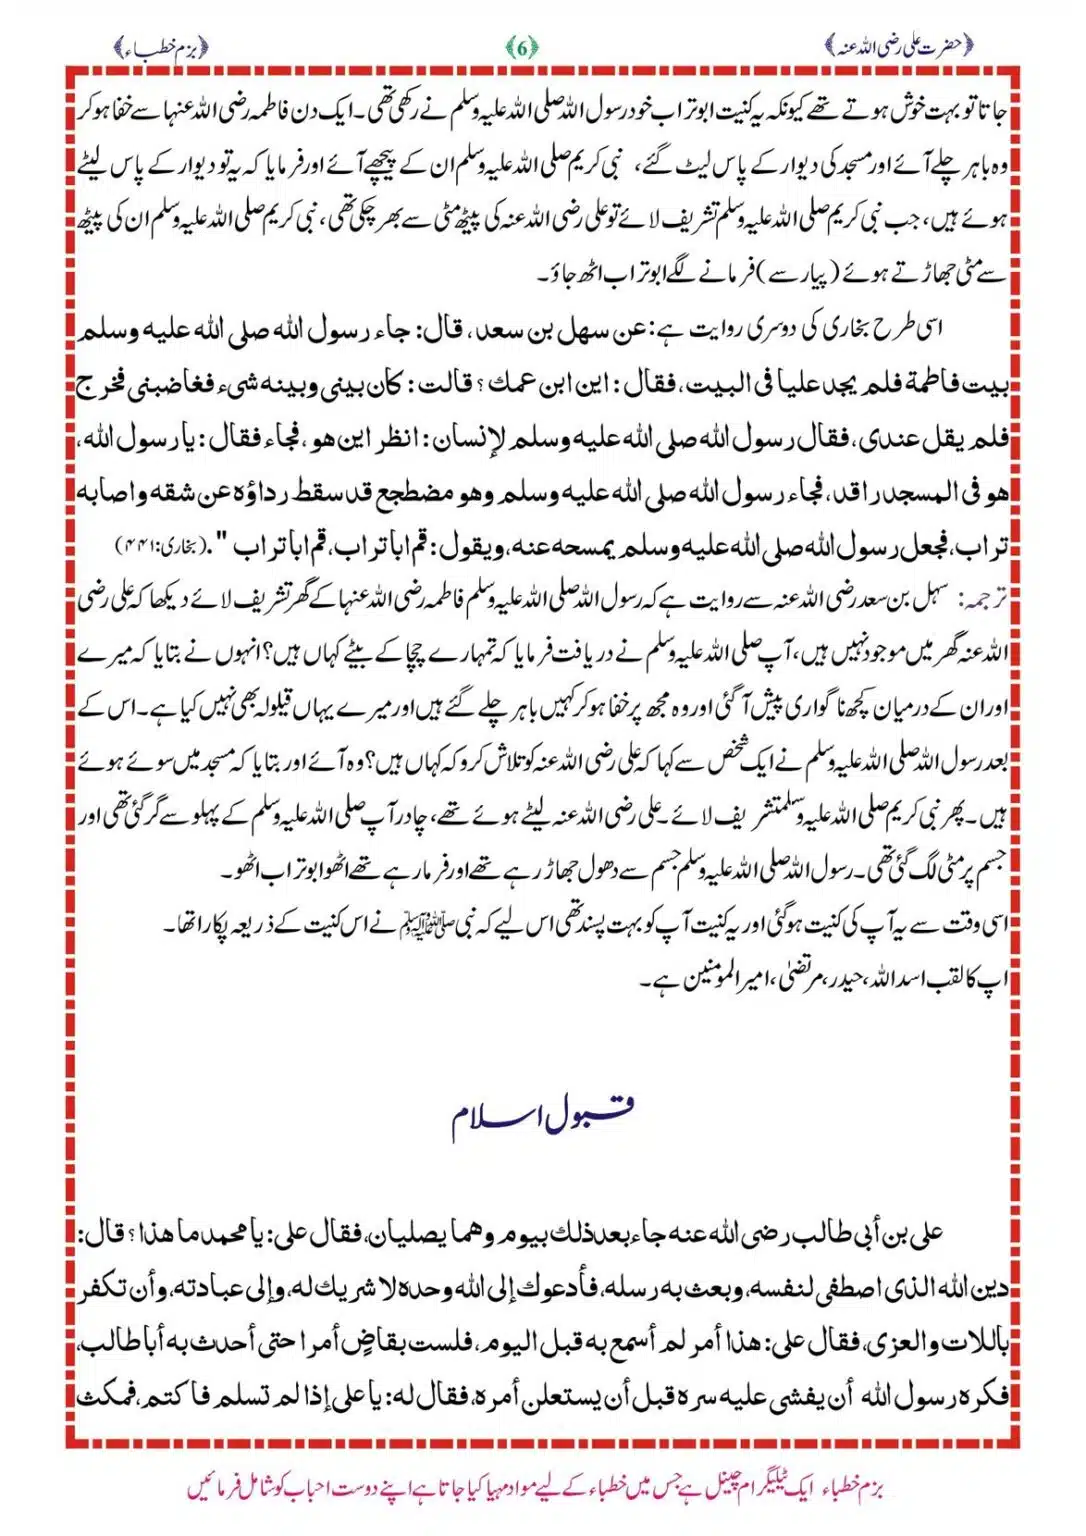 ﴿حضرت علی رضی اللہ عنہ﴾ ﴿6﴾ ﴿بزم خطباء﴾
جاتا تو بہت خوش ہوتے تھے کیونکہ یہ کنیت ابوتراب خود رسول اللہ صلی اللہ علیہ وسلم نے رکھی تھی۔ ایک دن فاطمہ رضی اللہ عنہا سے خفا ہو کر
وہ باہر چلے آئے اور مسجد کی دیوار کے پاس لیٹ گئے، نبی کریم صلی اللہ علیہ وسلم ان کے پیچھے آئے اور فرمایا کہ یہ تو دیوار کے پاس لیٹے
ہوئے ہیں، جب نبی کریم صلی اللہ علیہ وسلم تشریف لائے تو علی رضی اللہ عنہ کی پیٹھ مٹی سے بھر چکی تھی، نبی کریم صلی اللہ علیہ وسلم ان کی پیٹھ
سے مٹی جھاڑتے ہوئے (پیار سے) فرمانے لگے ابوتراب اٹھ جاؤ۔
اسی طرح بخاری کی دوسری روایت ہے: عن سهل بن سعد، قال: جاء رسول الله صلى الله عليه وسلم
بيت فاطمة فلم يجد عليا فى البيت، فقال: اين ابن عمك؟ قالت: كان بينى وبينه شىء فغاضبنى فخرج
فلم يقل عندى، فقال رسول الله صلى الله عليه وسلم لإنسان: انظر اين هو، فجاء فقال: يا رسول الله،
هو فى المسجد راقد، فجاء رسول الله صلى الله عليه وسلم وهو مضطجع قد سقط رداؤه عن شقه واصابه
تراب، فجعل رسول الله صلى الله عليه وسلم يمسحه عنه، ويقول: قم ابا تراب، قم ابا تراب ". (بخاری: ۴۴۱)
ترجمہ: سہل بن سعد رضی اللہ عنہ سے روایت ہے کہ رسول اللہ صلی اللہ علیہ وسلم فاطمہ رضی اللہ عنہا کے گھر تشریف لائے دیکھا کہ علی رضی
اللہ عنہ گھر میں موجود نہیں ہیں، آپ صلی اللہ علیہ وسلم نے دریافت فرمایا کہ تمہارے چچا کے بیٹے کہاں ہیں؟ انہوں نے بتایا کہ میرے
اور ان کے درمیان کچھ ناگواری پیش آ گئی اور وہ مجھ پر خفا ہو کر کہیں باہر چلے گئے ہیں اور میرے یہاں قیلولہ بھی نہیں کیا ہے۔ اس کے
بعد رسول اللہ صلی اللہ علیہ وسلم نے ایک شخص سے کہا کہ علی رضی اللہ عنہ کو تلاش کرو کہ کہاں ہیں؟ وہ آئے اور بتایا کہ مسجد میں سوئے ہوئے
ہیں۔ پھر نبی کریم صلی اللہ علیہ وسلمتشریف لائے۔ علی رضی اللہ عنہ لیٹے ہوئے تھے، چادر آپ صلی اللہ علیہ وسلم کے پہلو سے گر گئی تھی اور
جسم پر مٹی لگ گئی تھی۔ رسول اللہ صلی اللہ علیہ وسلم جسم سے دھول جھاڑ رہے تھے اور فرما رہے تھے اٹھو ابوتراب اٹھو۔
اسی وقت سے یہ آپ کی کنیت ہوگئی اور یہ کنیت آپ کو بہت پسند تھی اس لیے کہ نبی ﷺ نے اس کنیت کے ذریعہ پکارا تھا۔
اپ کا لقب اسد اللہ، حیدر، مرتضیٰ، امیر المومنین ہے۔
قبول اسلام
على بن أبى طالب رضى الله عنه جاء بعد ذلك بيوم وهما يصليان، فقال على: يا محمد ما هذا؟ قال:
دين الله الذى اصطفى لنفسه، وبعث به رسله، فأدعوك إلى الله وحده لا شريك له، وإلى عبادته، وأن تكفر
باللات والعزى، فقال على: هذا أمر لم أسمع به قبل اليوم، فلست بقاضٍ أمرا حتى أحدث به أبا طالب،
فكره رسول الله أن يفشى عليه سره قبل أن يستعلن أمره، فقال له: يا على إذا لم تسلم فاكتم، فمكث
بزم خطباء ایک ٹیلیگرام چینل ہے جس میں خطباء کے لیے مواد مہیا کیا جاتا ہے اپنے دوست احباب کو شامل فرمائیں